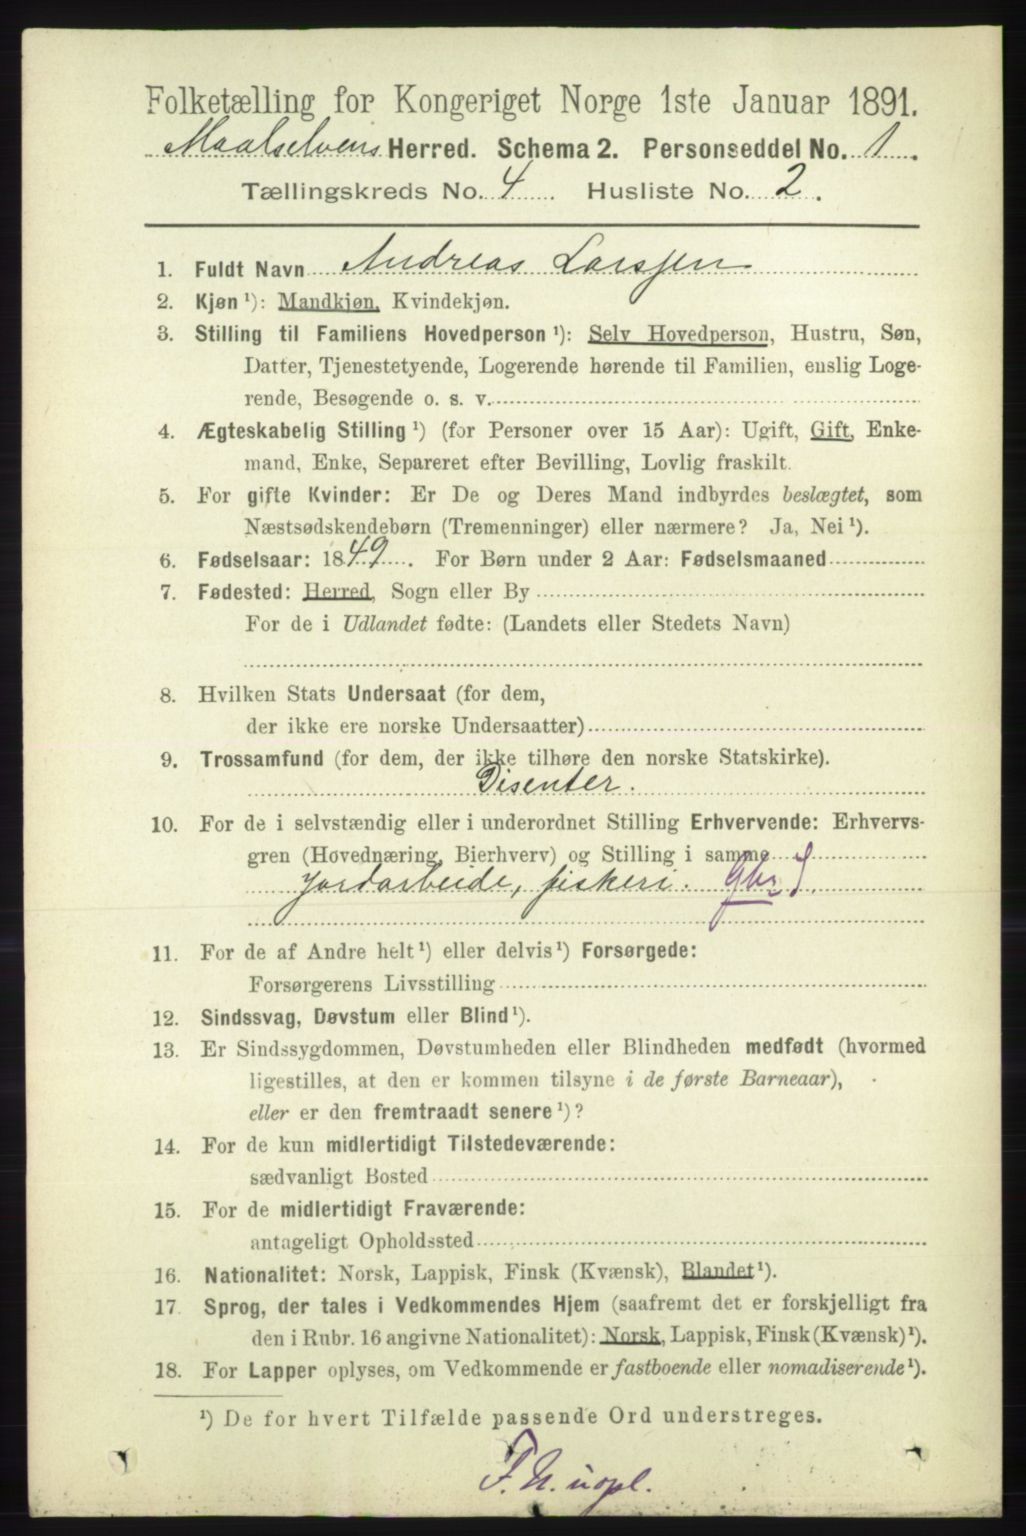 Folketælling for Kongeriget Norge 1ste Januar 1891.
Maalselvens Herred. Schema 2. Personseddel No. 1.
Tællingskreds No. 4. Husliste No. 2.
1. Fuldt Navn Andreas Larsjen
2. Kjøn ¹): Mandkjøn, Kvindekjøn.
3. Stilling til Familiens Hovedperson ¹): Selv Hovedperson, Hustru, Søn,
Datter, Tjenestetyende, Logerende hørende til Familien, enslig Loge-
rende, Besøgende o. s. v.
4. Ægteskabelig Stilling ¹) (for Personer over 15 Aar): Ugift, Gift, Enke-
mand, Enke, Separeret efter Bevilling, Lovlig fraskilt.
5. For gifte Kvinder: Er De og Deres Mand indbyrdes beslægtet, som
Næstsødskendebørn (Tremenninger) eller nærmere? Ja, Nei ¹).
6. Fødselsaar: 1849. For Børn under 2 Aar: Fødselsmaaned
7. Fødested: Herred, Sogn eller By
For de i Udlandet fødte: (Landets eller Stedets Navn)
8. Hvilken Stats Undersaat (for dem,
der ikke ere norske Undersaatter)
9. Trossamfund (for dem, der ikke tilhøre den norske Statskirke).
Disenter.
10. For de i selvstændig eller i underordnet Stilling Erhvervende: Erhvervs-
gren (Hovednæring, Bierhverv) og Stilling i samme
Jordarbeide, fiskeri. Gbr S.
11. For de af Andre helt ¹) eller delvis ¹) Forsørgede:
Forsørgerens Livsstilling
12. Sindssvag, Døvstum eller Blind ¹).
13. Er Sindssygdommen, Døvstumheden eller Blindheden medfødt (hvormed
ligestilles, at den er kommen tilsyne i de første Barneaar),
eller er den fremtraadt senere ¹)?
14. For de kun midlertidigt Tilstedeværende:
sædvanligt Bosted
15. For de midlertidigt Fraværende:
antageligt Opholdssted
16. Nationalitet: Norsk, Lappisk, Finsk (Kvænsk), Blandet ¹).
17. Sprog, der tales i Vedkommendes Hjem (saafremt det er forskjelligt fra
den i Rubr. 16 angivne Nationalitet): Norsk, Lappisk, Finsk (Kvænsk) ¹).
18. For Lapper oplyses, om Vedkommende er fastboende eller nomadiserende ¹).
¹) De for hvert Tilfælde passende Ord understreges.
F. N. uopl.